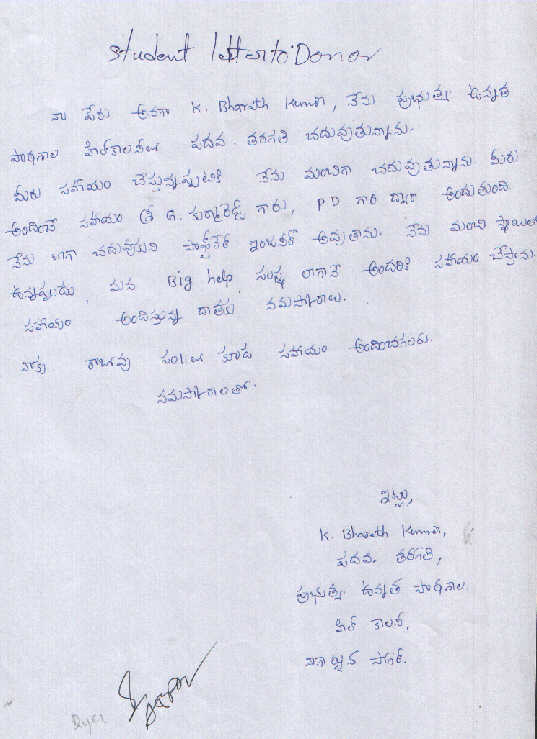 Student letter to Donor
నా పేరు అనగా K. Bharath Kumar, నేను ప్రభుత్వ ఉన్నత
పాఠశాల హిల్‌కాలనీలో పదవ తరగతి చదువుతున్నాను.
మీరు సహాయం చేస్తున్నప్పటికి నేను మంచిగా చదువుతున్నాను. మీరు
అందించే సహాయం శ్రీ G. గారు, PD గారి ద్వారా అందుతుంది.
నేను బాగా చదువుకుని అవుతాను. నేను మంచి స్థాయిలో
ఉన్నప్పుడు మన Big help సంస్థ లాగానే అందరికి సహాయం చేస్తాను.
సహాయం అందిస్తున్న దాతకు నమస్కారాలు.
నాకు రాబోవు సం॥లో కూడ సహాయం అందించగలరు.
నమస్కారాలతో.
ఇట్లు,
K. Bharath Kumar,
పదవ తరగతి,
ప్రభుత్వ ఉన్నత పాఠశాల
హిల్ కాలనీ,
నాగార్జున సాగర్.